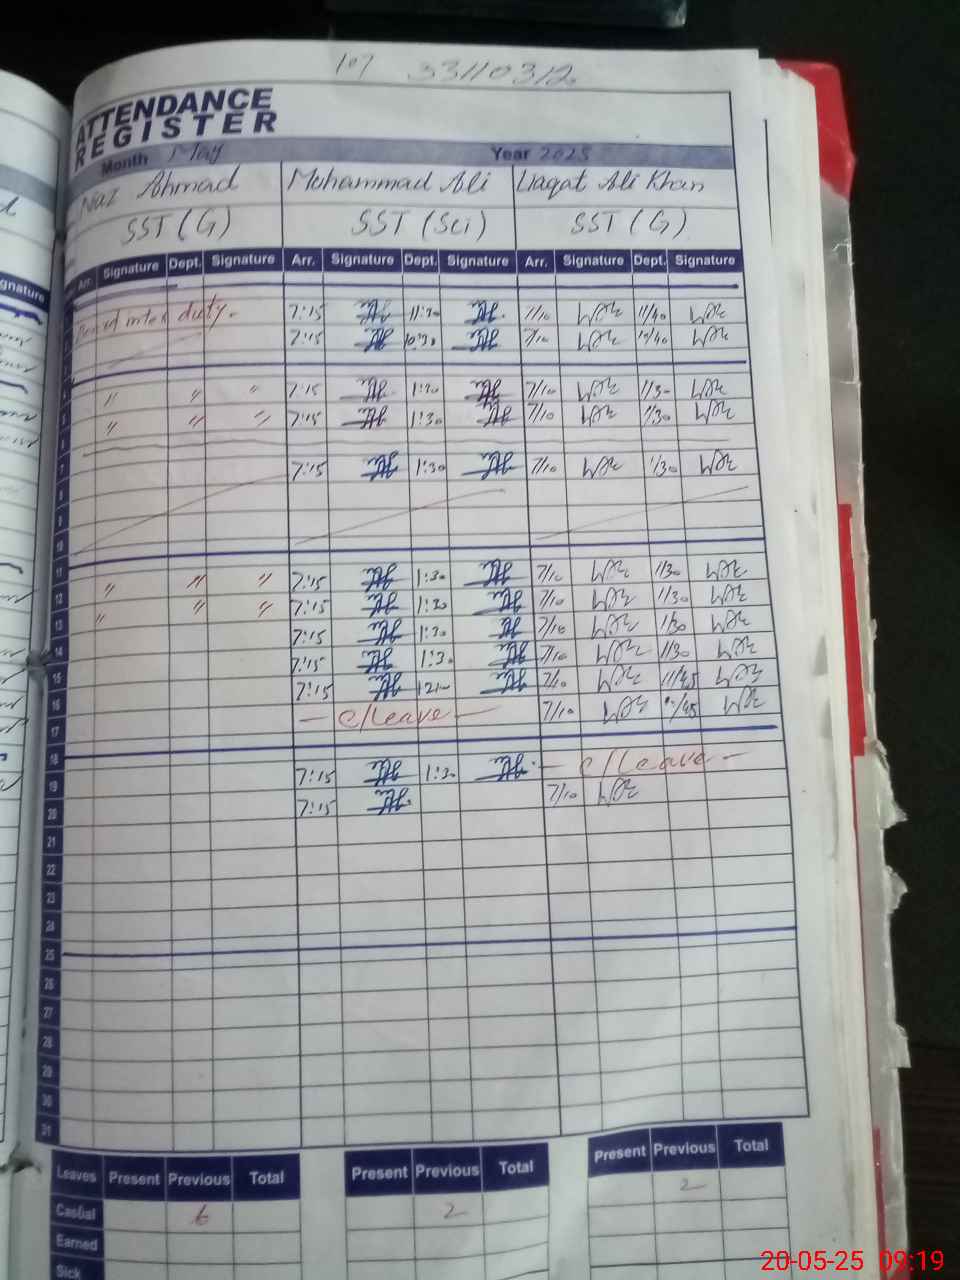 107 33110312
ATTENDANCE
REGISTER
Month May Year 2025
Naz Ahmad Mohammad Ali Liaqat Ali Khan
SST (G) SST (Sci) SST (G)
Arr. Signature Dept. Signature Arr. Signature Dept. Signature Arr. Signature Dept. Signature
duty. 7:15 11:30 7/10 11/40
7:15 10:30 7/10 10/40
" " " 7:15 1:30 7/10 1/30
5 " " " 7:15 1:30 7/10 1/30
6
7 7:15 1:30 7/10 1/30
8
9
10
11 " " " 7:15 1:30 7/10 1/30
12 " " " 7:15 1:30 7/10 1/30
13 7:15 1:30 7/10 1/30
14 7:15 1:30 7/10 1/30
15 7:15 7/10 11/45
16 – c/leave – 7/10
17
18 7:15 1:30 – c/leave –
19 7:15 7/10
20
21
22
23
24
25
26
27
28
29
30
31
Leaves Present Previous Total Present Previous Total Present Previous Total
Casual 6 2 2
Earned
Sick
20-05-25 09:19